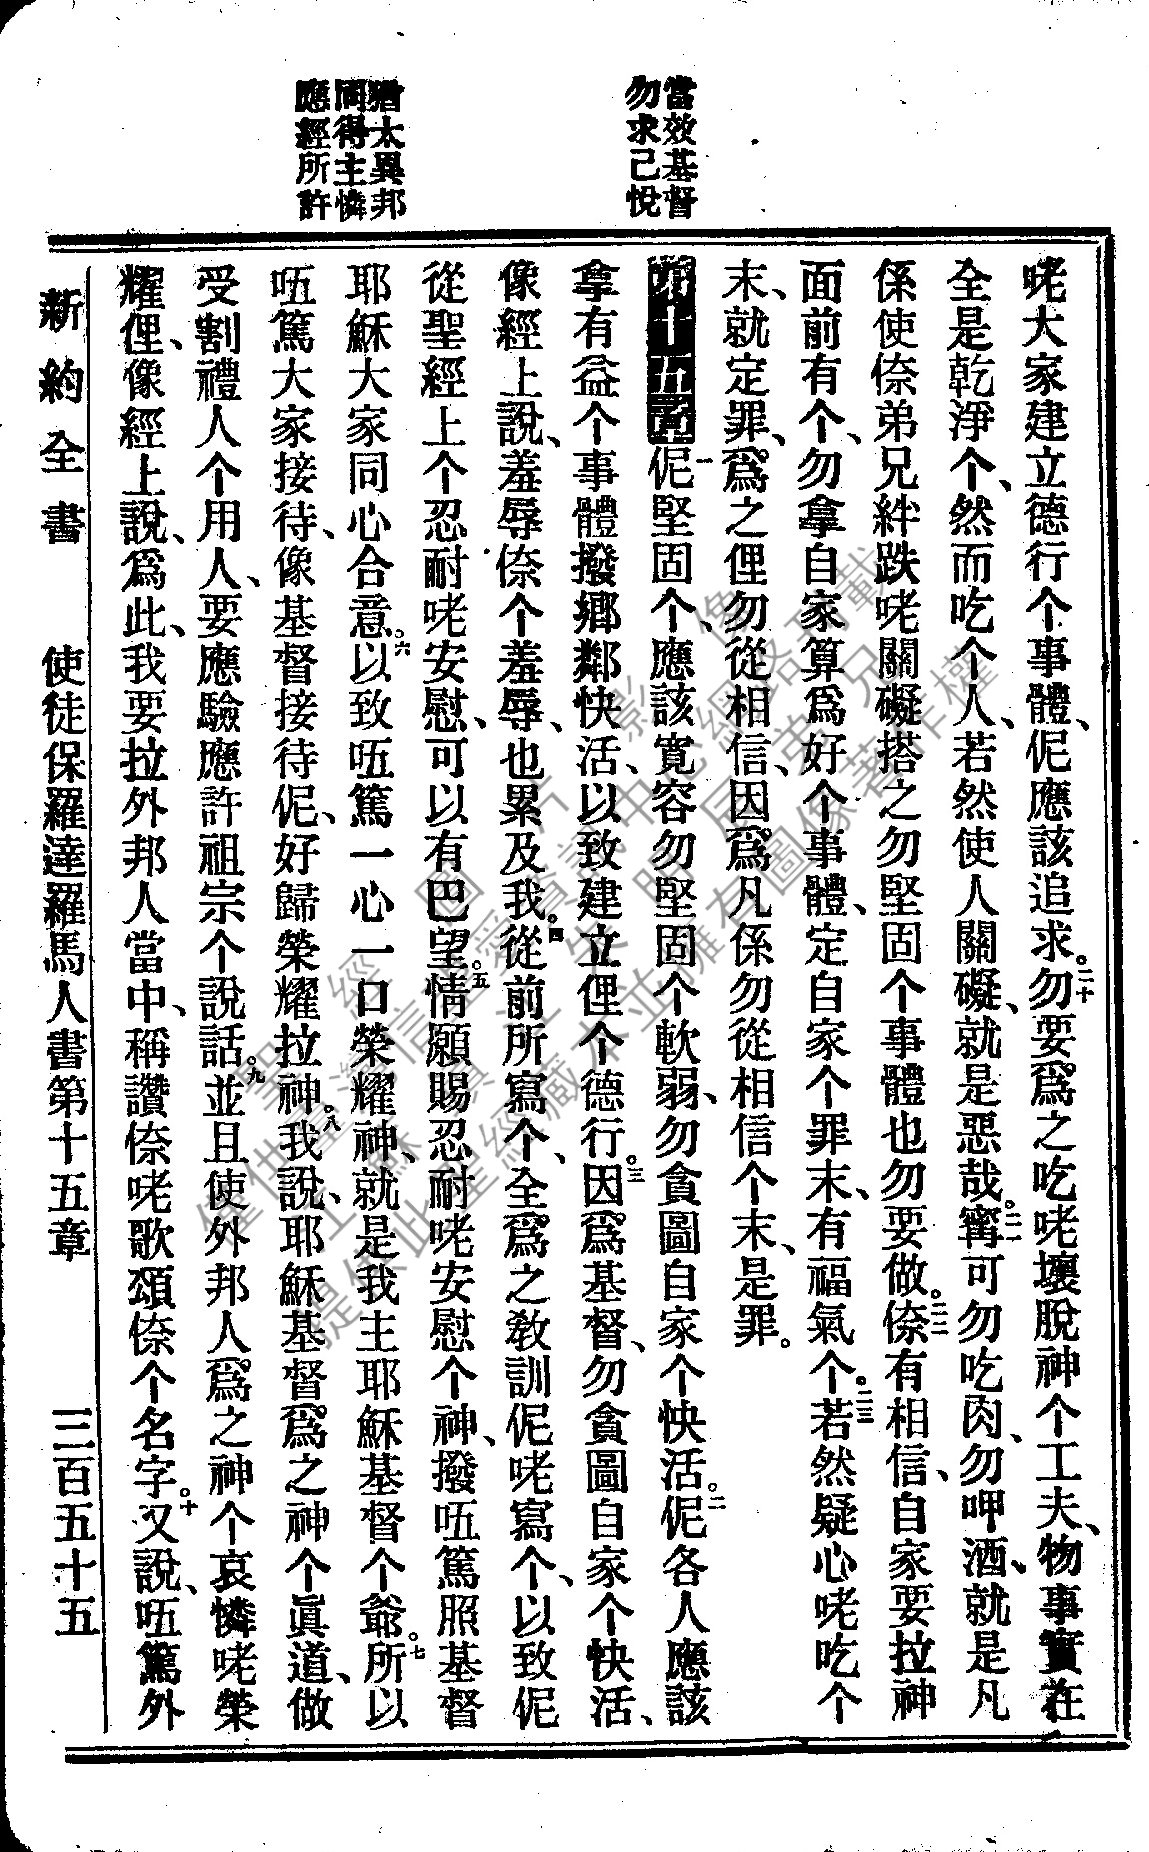 當效基督
勿求己悅
猶太異邦
同得主憐
應經所許
咾大家建立德行个事體、伲應該追求。二十勿要爲之吃咾壞脫神个工夫、物事實在
全是乾淨个、然而吃个人、若然使人關礙、就是惡哉。二一甯可勿吃肉、勿呷酒、就是凡
係使㑚弟兄絆跌咾關礙搭之勿堅固个事體也勿要做。二二㑚有相信、自家要拉神
面前有个、勿拿自家算爲好个事體、定自家个罪末、有福氣个。二三若然疑心咾吃个
末、就定罪、爲之俚勿從相信、因爲凡係勿從相信个末、是罪。
第十五章一伲堅固个、應該寬容勿堅固个軟弱、勿貪圖自家个快活。二伲各人應該
拿有益个事體撥鄉鄰快活、以致建立俚个德行。三因爲基督、勿貪圖自家个快活、
像經上說、羞辱㑚个羞辱、也累及我。四從前所寫个、全爲之敎訓伲咾寫个、以致伲
從聖經上个忍耐咾安慰、可以有巴望。五情願賜忍耐咾安慰个神、撥㕶篤照基督
耶穌大家同心合意。六以致㕶篤一心一口榮耀神、就是我主耶穌基督个爺。七所以
㕶篤大家接待、像基督接待伲、好歸榮耀拉神。八我說、耶穌基督爲之神个眞道、做
受割禮人个用人、要應驗應許祖宗个說話。九並且使外邦人爲之神个哀憐咾榮
耀俚、像經上說、爲此、我要拉外邦人當中、稱讚㑚咾歌頌㑚个名字。十又說、㕶篤外
新約全書　使徒保羅達羅馬人書第十五章　三百五十五
聖經圖片影像
僅供臺灣信望愛資訊中心網路刊載